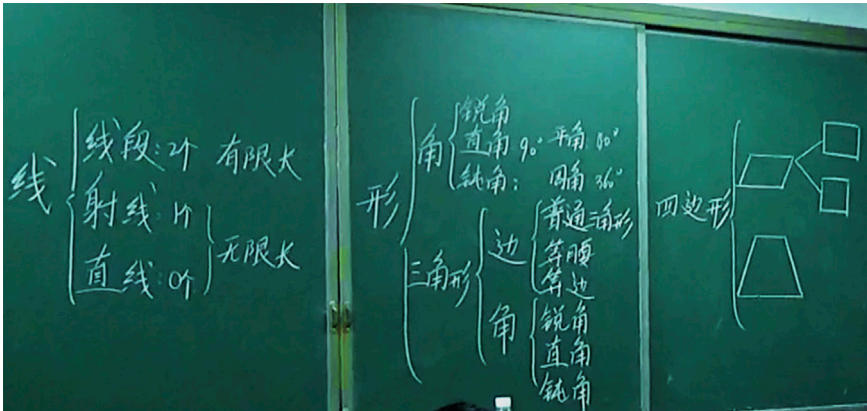 线
线段:2个 有限长
射线:1个
直线:0个
无限长
形
角
锐角
直角 90° 平角 180°
钝角: 周角 360°
三角形
边
普通三角形
等腰
等边
角
锐角
直角
钝角
四边形